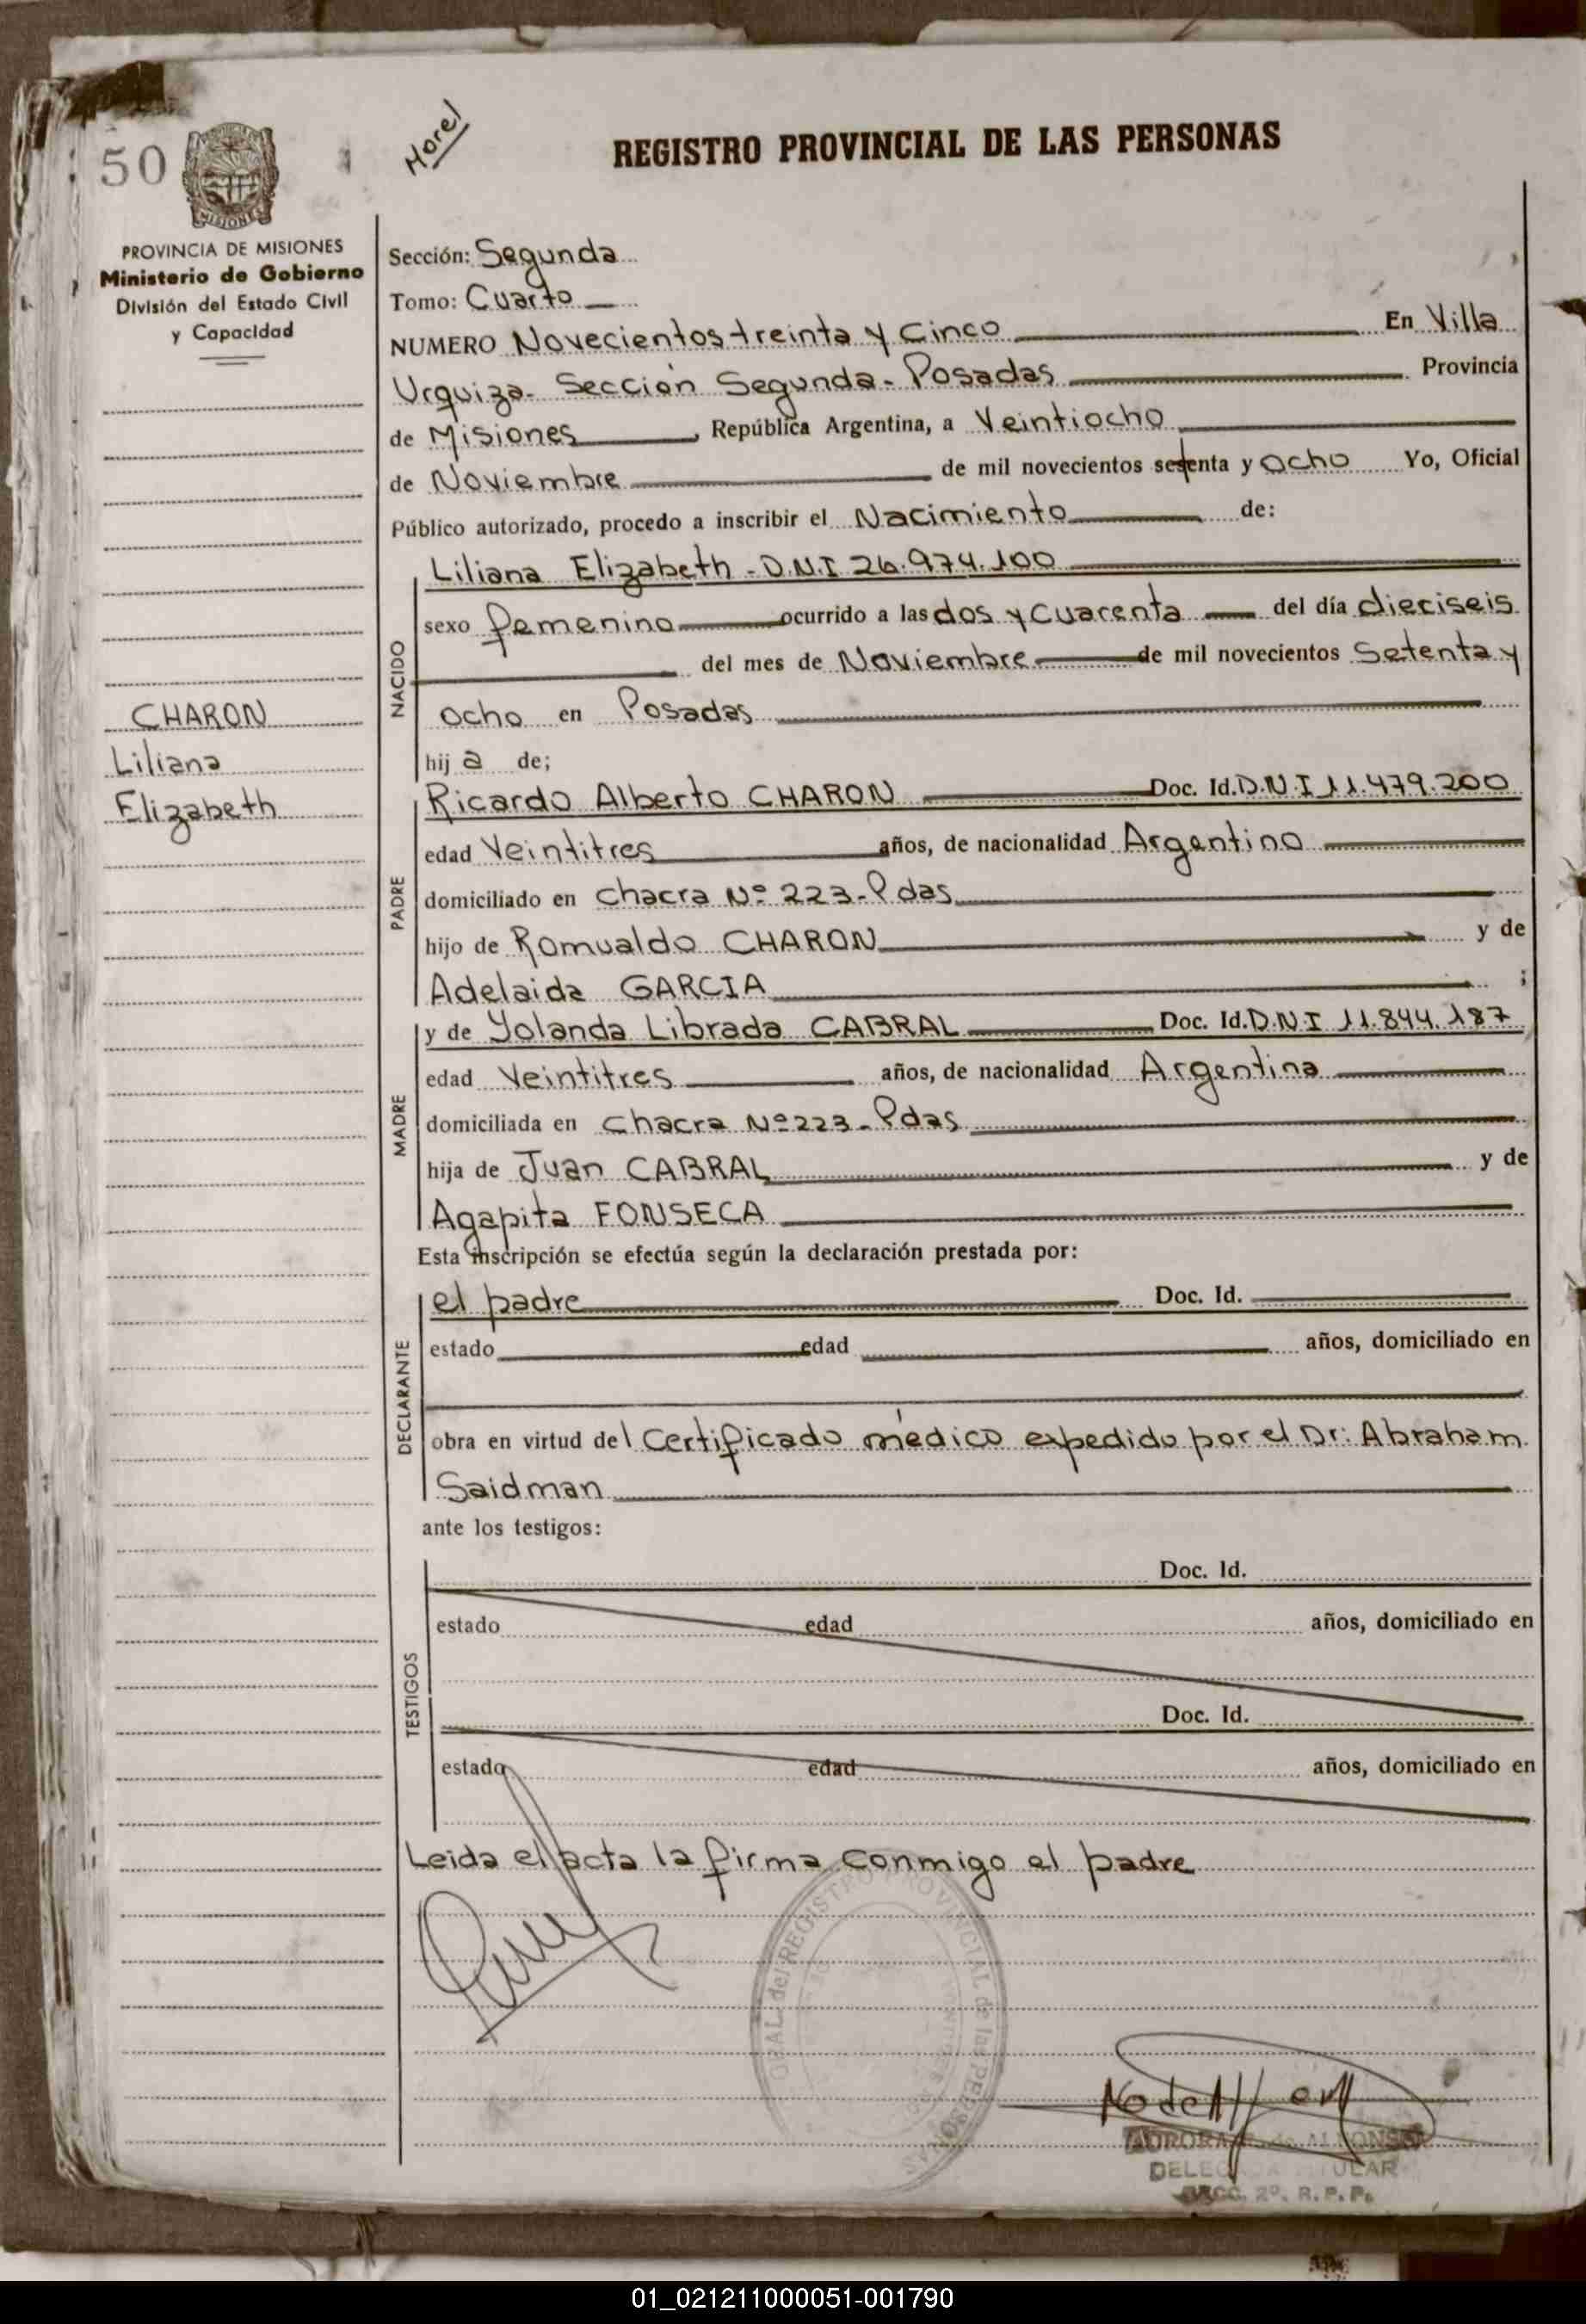 50
Morel
REGISTRO PROVINCIAL DE LAS PERSONAS
MISIONES
PROVINCIA DE MISIONES
Ministerio de Gobierno
División del Estado Civil
y Capacidad
Sección: Segunda
Tomo: Cuarto
NUMERO Novecientos treinta y Cinco En Villa
Urquiza - Sección Segunda - Posadas Provincia
de Misiones, República Argentina, a Veintiocho
de Noviembre de mil novecientos setenta y ocho Yo, Oficial
Público autorizado, procedo a inscribir el Nacimiento de:
NACIDO
Liliana Elizabeth - D.N.I 26.974.100
sexo femenino ocurrido a las dos y cuarenta del día dieciseis
del mes de Noviembre de mil novecientos setenta y
ocho en Posadas
hija de;
CHARON
Liliana
Elizabeth
PADRE
Ricardo Alberto CHARON Doc. Id. D.N.I 11.479.200
edad Veintitres años, de nacionalidad Argentino
domiciliado en chacra Nº 223 - Pdas
hijo de Romualdo CHARON y de
Adelaida GARCIA ;
MADRE
y de Yolanda Librada CABRAL Doc. Id. D.N.I 11.844.187
edad Veintitres años, de nacionalidad Argentina
domiciliada en chacra Nº 223 - Pdas
hija de Juan CABRAL y de
Agapita FONSECA
Esta inscripción se efectúa según la declaración prestada por:
DECLARANTE
el padre Doc. Id.
estado edad años, domiciliado en
obra en virtud del Certificado médico expedido por el Dr: Abraham
Saidman
ante los testigos:
TESTIGOS
Doc. Id.
estado edad años, domiciliado en
Doc. Id.
estado edad años, domiciliado en
Leida el acta la firma conmigo el padre
del REGISTRO PROVINCIAL de las PERSONAS
AURORA de ALFONSO
SECC. 2º. R.P.P.
01_021211000051-001790